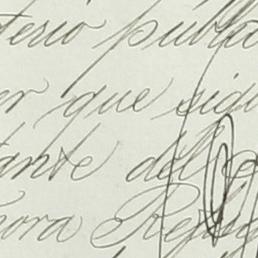 terio publi
er que sig
tante del
ñora Repú